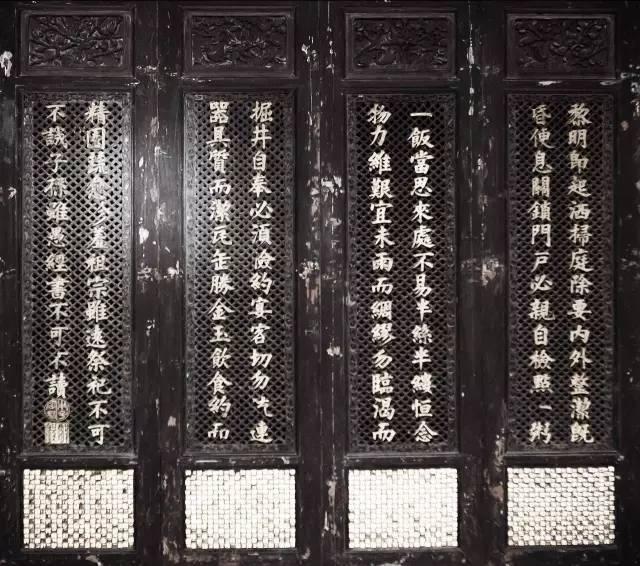 黎明即起洒掃庭除要內外整潔既
昏便息關鎖門戶必親自檢點一粥
一飯當思來處不易半絲半縷恒念
物力維艱宜未雨而綢繆勿臨渴而
掘井自奉必須儉約宴客切勿流連
器具質而潔瓦缶勝金玉飲食約而
精園蔬愈珍羞祖宗雖遠祭祀不可
不誠子孫雖愚經書不可不讀